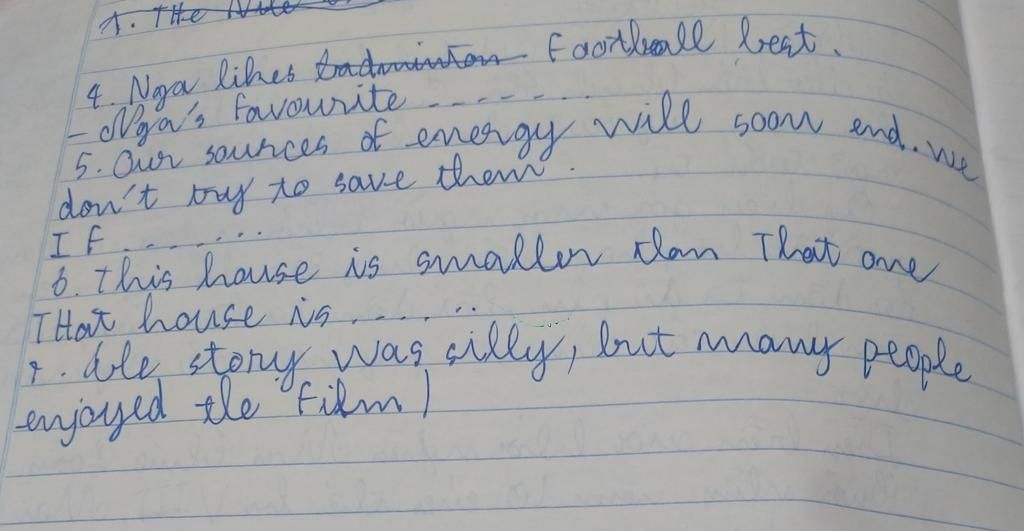 1. THe Nile
4. Nga likes badminton Football best.
- Nga's favourite .......
5. Our sources of energy will soon end. We
don't try to save them.
IF .......
6. This house is smaller than That one
THat house is .......
7. the story was silly, but many people
enjoyed the Film